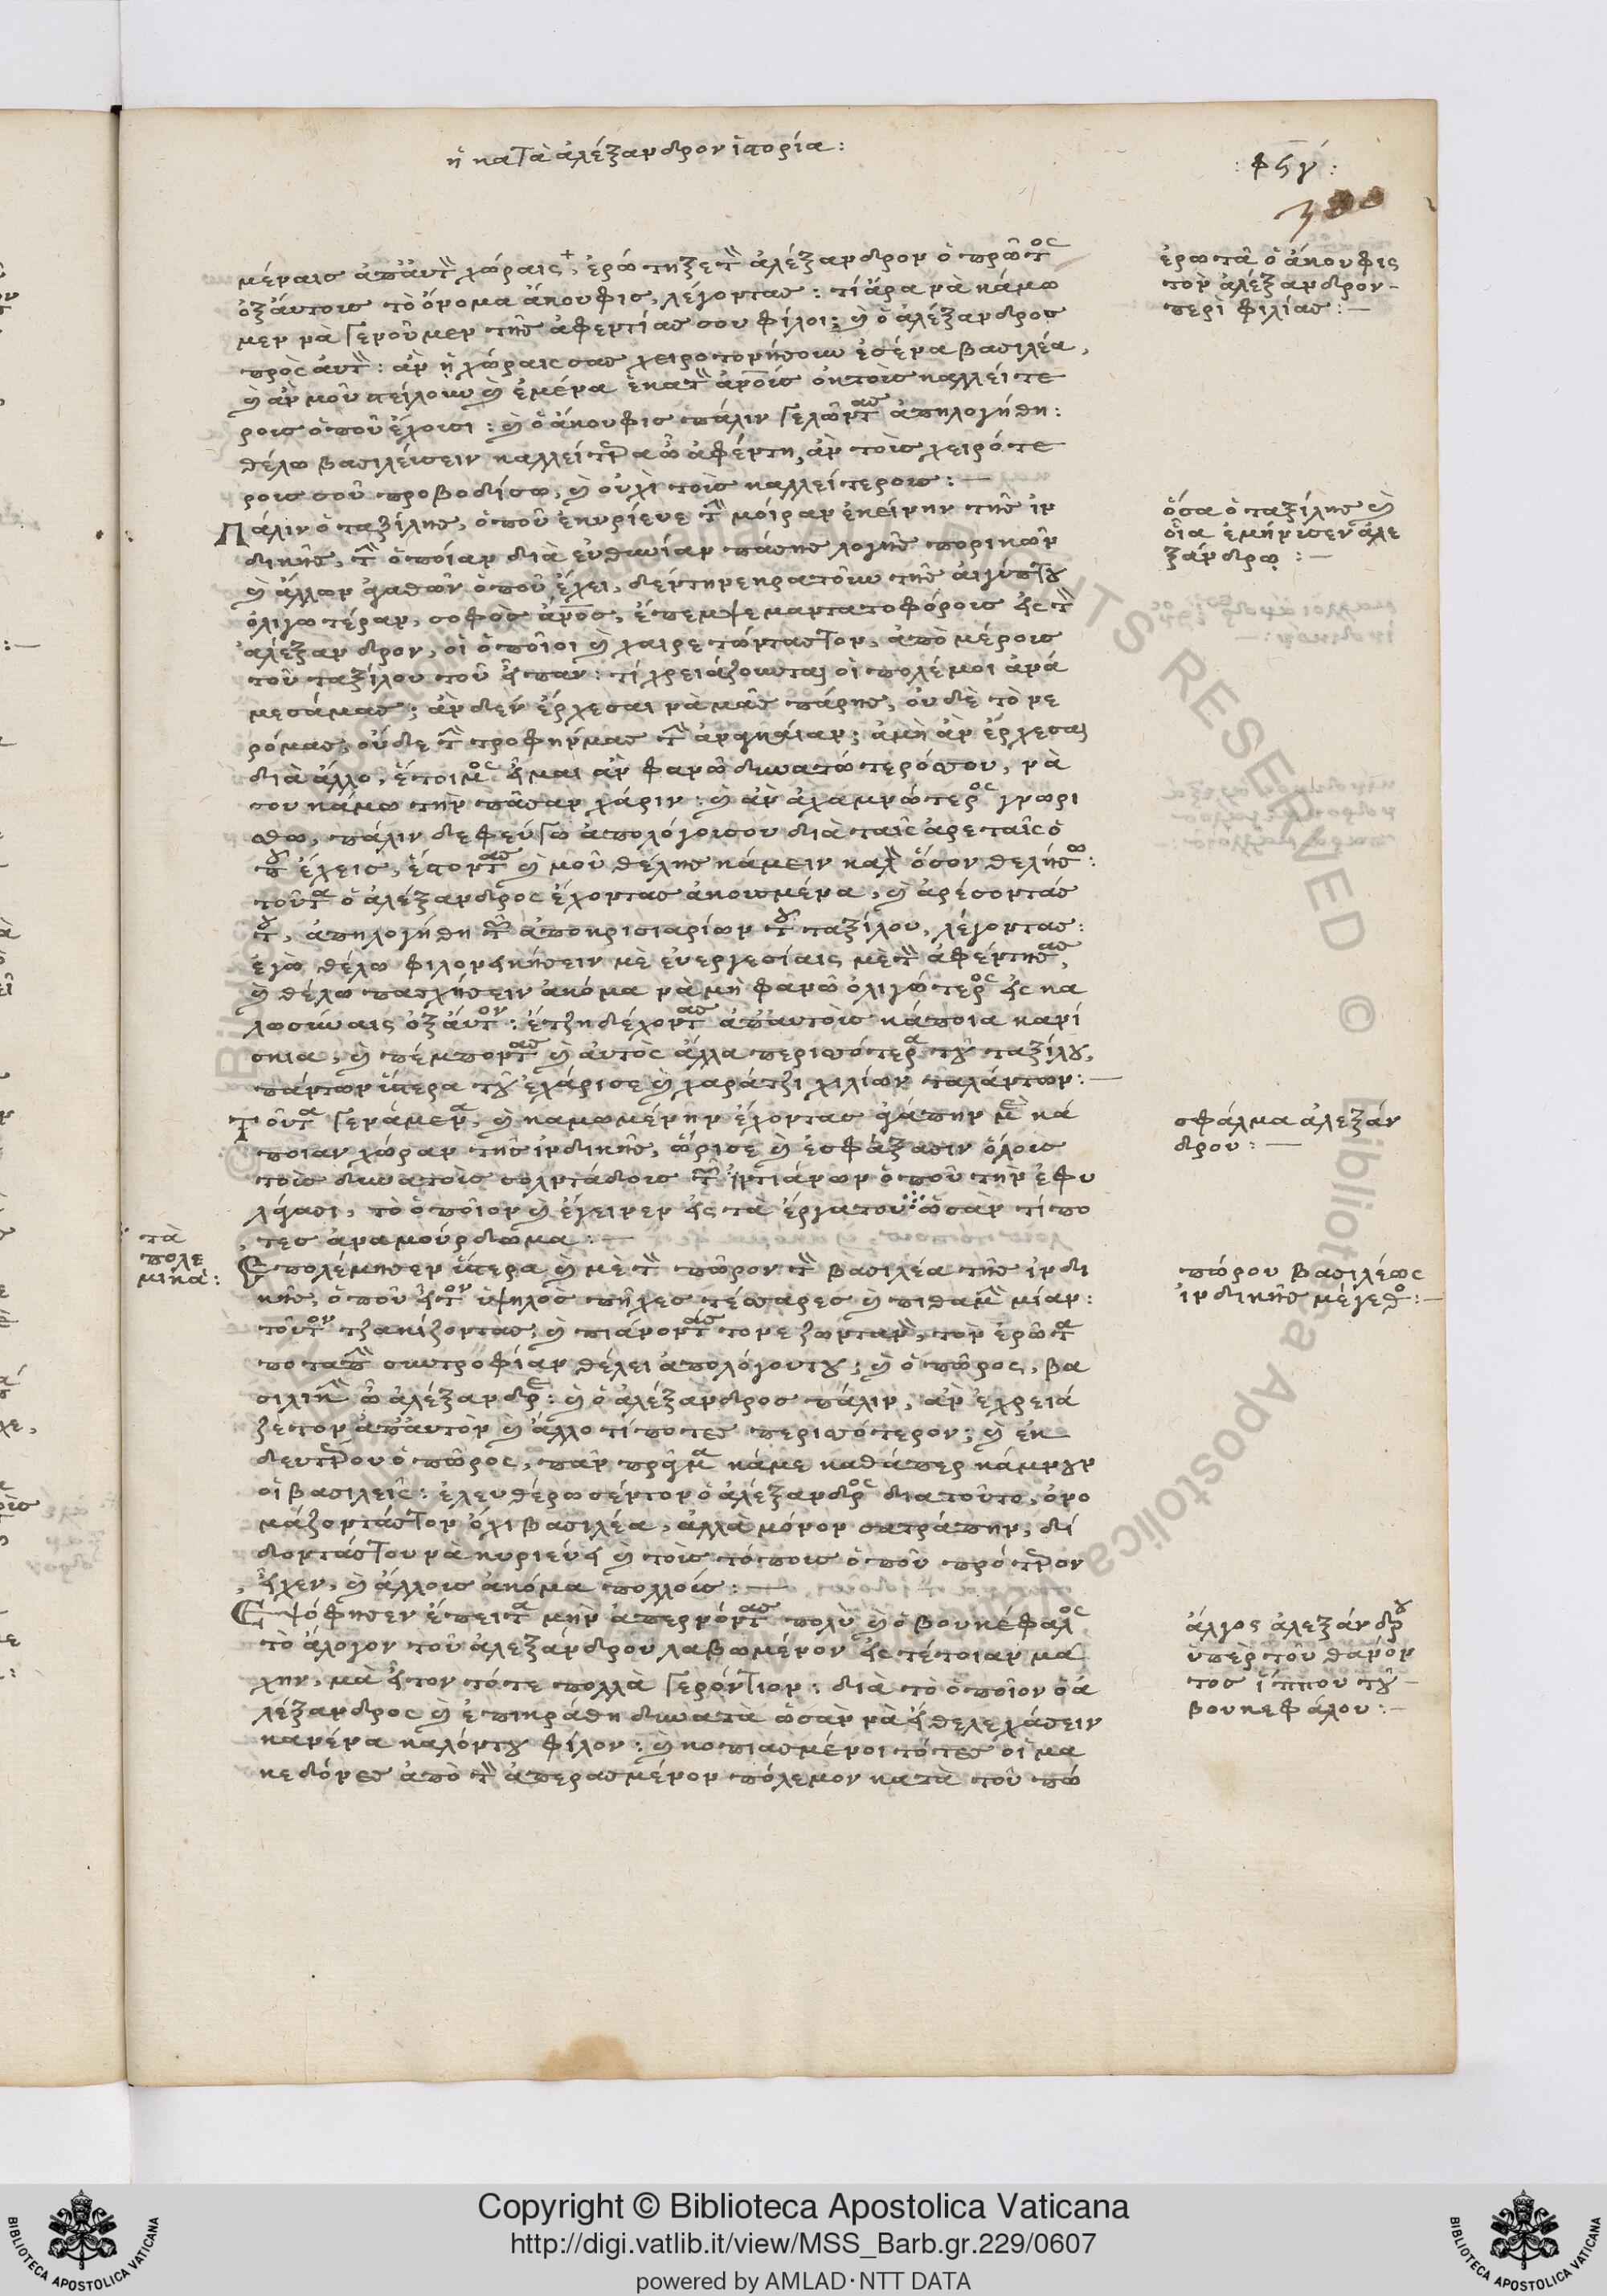 ἡ κατὰ ἀλέξανδρον ἱστορία:
:φϟγ:
300
μέναις ἀπ' αὐτὰς χώραις, ἐρώτηξε τὸν ἀλέξανδρον ὁ πρῶτος
ὀξ αὐτοὺς τὸ ὄνομα ἄκουφις, λέγοντας: τί ἄρα νὰ κάμω
μεν νὰ γενοῦμεν τῆς ἀφεντίας σου φίλοι; καὶ ὁ ἀλέξανδρος
πρὸς αὐτὸν: ἂν ἡ χώραις σας χειροτονήσουν ἐσένα βασιλέα,
καὶ ἂν μοῦ στείλουν καὶ ἐμένα ἑκατὸν ἀνοὺς ὀκ τοὺς καλλείτε
ρους ὁποῦ ἔχουσι: καὶ ὁ ἄκουφις πάλιν γελῶντας ἀπηλογήθη:
θέλω βασιλεύσειν καλλείτερα ὦ ἀφέντη, ἂν τοὺς χειρότε
ρους σοῦ προβοδίσω, καὶ οὐχὶ τοὺς καλλείτερους:—
Πάλιν ὁ ταξίλης, ὁποῦ ἐκυρίευε τὴν μοίραν ἐκείνην τῆς ἰν
δικῆς, τὴν ὁποίαν διὰ εὐθυνίαν πάσης λογῆς πορικῶν
καὶ ἄλλων ἀγαθῶν ὁποῦ ἔχει, δέντηνε κρατοῦν τῆς αἰγύπτου
ὀλιγωτέραν, σοφὸς ἀνος, ἔπεμψε μαντατοφόρους εἰς τὸν
ἀλέξανδρον, οἱ ὁποῖοι καὶ χαιρετώντας τον, ἀπὸ μέρους
τοῦ ταξίλου τοῦ εἶπαν: τί χρειάζουνται οἱ πολέμοι ἀνά
μεσάμας; ἂν δὲν ἔρχεσαι νὰ μᾶς πάρῃς, οὐδὲ τὸ νε
ρόμας, οὐδὲ τὴν τροφήνμας τὴν ἀναγκαίαν; ἀμὴ ἂν ἔρχεσαι
διὰ ἄλλο, ἕτοιμος εἶμαι ἂν φανῶ δυνατώτερόσου, νὰ
σου κάμω τὴν πᾶσαν χάριν: καὶ ἂν ἀχαμνώτερος γνωρι
σθῶ, πάλιν δε φεύγω ἀπολόγουσου διὰ ταῖς ἀρεταῖς ὁ
ποῦ ἔχεις, ἔστοντας καὶ μοῦ θέλῃς κάμειν καλὸν ὅσον θελήσῃς:
τοῦτα ὁ ἀλέξανδρος ἔχοντας ἀκουσμένα, καὶ ἀρέσοντάς
του, ἀπηλογήθη τῶν ἀποκρισιαρίων τοῦ ταξίλου, λέγοντας:
ἐγὼ θέλω φιλονεικήσειν μὲ εὐεργεσίαις μὲ τὸν ἀφέντησας,
καὶ θέλω πασχήσειν ἀκόμα νὰ μὴ φανῶ ὀλιγώτερος εἰς κα
λωσύναις ὀξ αὐτὸν: ἔτζη δέχοντας ἀπ' αὐτοὺς κάποια κανί
σκια, καὶ πέμποντας καὶ αὐτὸς ἄλλα περισσότερα τοῦ ταξίλου,
πάντων ὕστερα τοῦ ἐχάρισε καὶ χαράτζι χιλίων ταλάντων:—
Τοῦτα γενάμενα, καὶ καμωμένην ἔχοντας ἀγάπην μὲ κά
ποιαν χώραν τῆς ἰνδικῆς, ὥρισε καὶ ἐσφάξασιν ὅλους
τοὺς δυνατοὺς σολντάδους τῶν ἰντιάνων ὁποῦ τὴν ἐφυ
λάγασι, τὸ ὁποῖον καὶ ἔγεινεν εἰς τὰ ἔργατου ὡσὰν τίπο
τες ἀναμούρδωμα:—
Ἐπολέμησεν ὕστερα καὶ μὲ τὸν πῶρον τὸν βασιλέα τῆς ἰνδι
κῆς, ὁποῦ εἶτον ὑψηλὸς πῆχες τέσσαρες καὶ πιθαμὴν μίαν:
τοῦτον τζακίζοντας, καὶ πιάνοντάς τονε ζωντανὸν, τὸν ἐρῶτα
ποταπὴν συντροφίαν θέλει ἀπολόγουτου; καὶ ὁ πῶρος, βα
σιλικὴν ὦ ἀλέξανδρε: καὶ ὁ ἀλέξανδρος πάλιν, ἂν ἐχρειά
ζετον ἀπ' αὐτὸν καὶ ἄλλο τίποτες περισσότερον; καὶ ἐκ
δευτέρου ὁ πῶρος, πᾶν πρᾶγμα κάμε καθάπερ κάμνουν
οἱ βασιλεῖς: ἐλευθέρωσέντον ὁ ἀλέξανδρος διατοῦτο, ὀνο
μάζοντάς τον ὄχι βασιλέα, ἀλλὰ μόνον σατράπην, δί
δοντάς του νὰ κυριεύει καὶ τοὺς τόπους ὁποῦ πρότερον
εἶχεν, καὶ ἄλλους ἀκόμα πολλούς:—
Ἐψόφησεν ἔπειτα μὴν ἀπερνόντας πολὺ καὶ ὁ βουκέφαλος
τὸ ἄλογον τοῦ ἀλεξάνδρου λαβωμένον εἰς τέτοιαν μά
χην, μὰ εἶτον τότε πολλὰ γερόντιον: διὰ τὸ ὁποῖον ὁ ἀ
λέξανδρος καὶ ἐπικράθη δυνατὰ ὡσὰν νὰ εἴθελε χάσειν
κανένα καλόντου φίλον: καὶ κοπιασμένοι τότες οἱ μα
κεδόνες ἀπὸ τὸν ἀπερασμένον πόλεμον κατὰ τοῦ πώ
ἐρωτᾶ ὁ ἄκουφις
τὸν ἀλέξανδρον
περὶ φιλίας:—
ὅσα ὁ ταξίλης καὶ
οἷα ἐμήνυσεν ἀλε
ξάνδρῳ:—
σφάλμα ἀλεξάν
δρου:—
τὰ
πολε
μικά:
πώρου βασιλέως
ἰνδικῆς μέγεθος:—
ἄλγος ἀλεξάνδρου
ὑπὲρ τοῦ θανόν
τος ἵππου τοῦ
βουκεφάλου:—
Copyright © Biblioteca Apostolica Vaticana
http://digi.vatlib.it/view/MSS_Barb.gr.229/0607
powered by AMLAD·NTT DATA
BIBLIOTECA APOSTOLICA VATICANA
BIBLIOTECA APOSTOLICA VATICANA